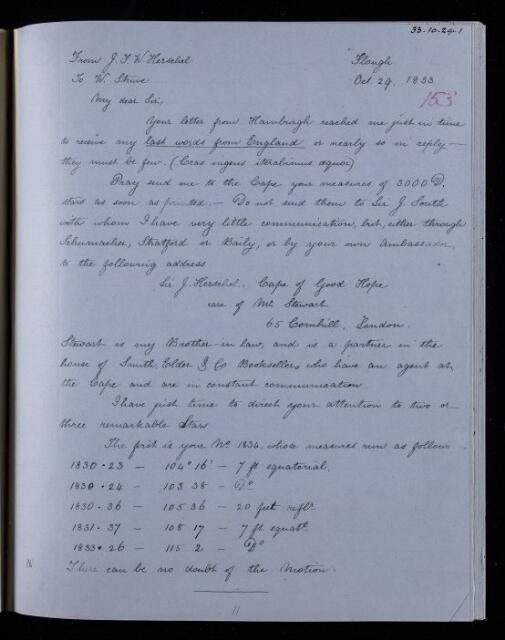 33-10-29-1
From J. F. W. Herschel Slough
To W. Struve Oct. 29. 1833
153
My dear Sir,
Your letter from Hambragh reached me just in time
to receive my last words from England or nearly so in reply—
they must be few. (Cras ingens iterabimus æquor)
Pray send me to the Cape your measures of 3000 D.
stars as soon as printed.— Do not send them to Sir J. South
with whom I have very little communication, but, either through
Schumacher, Stratford or Baily, or by your own Ambassador,
to the following address
Sir J. Herschel. Cape of Good Hope
care of Mr. Stewart
65 Cornhill. London.
Stewart is my Brother-in law, and is a partner in the
house of Smith Elder & Co Booksellers who have an agent at
the Cape and are in constant communication.
I have just time to direct your attention to two or
three remarkable Stars
The first is your No. 1834. whose measures run as follow
1830.23 — 104° 16' — 7 ft equatorial.
1830.24 — 103 38 — Do
1830.36 — 105 36 — 20 feet reflr.
1831.37 — 108 17 — 7 ft equatl.
1833.26 — 115 2 — Do
There can be no doubt of the Motion.
11